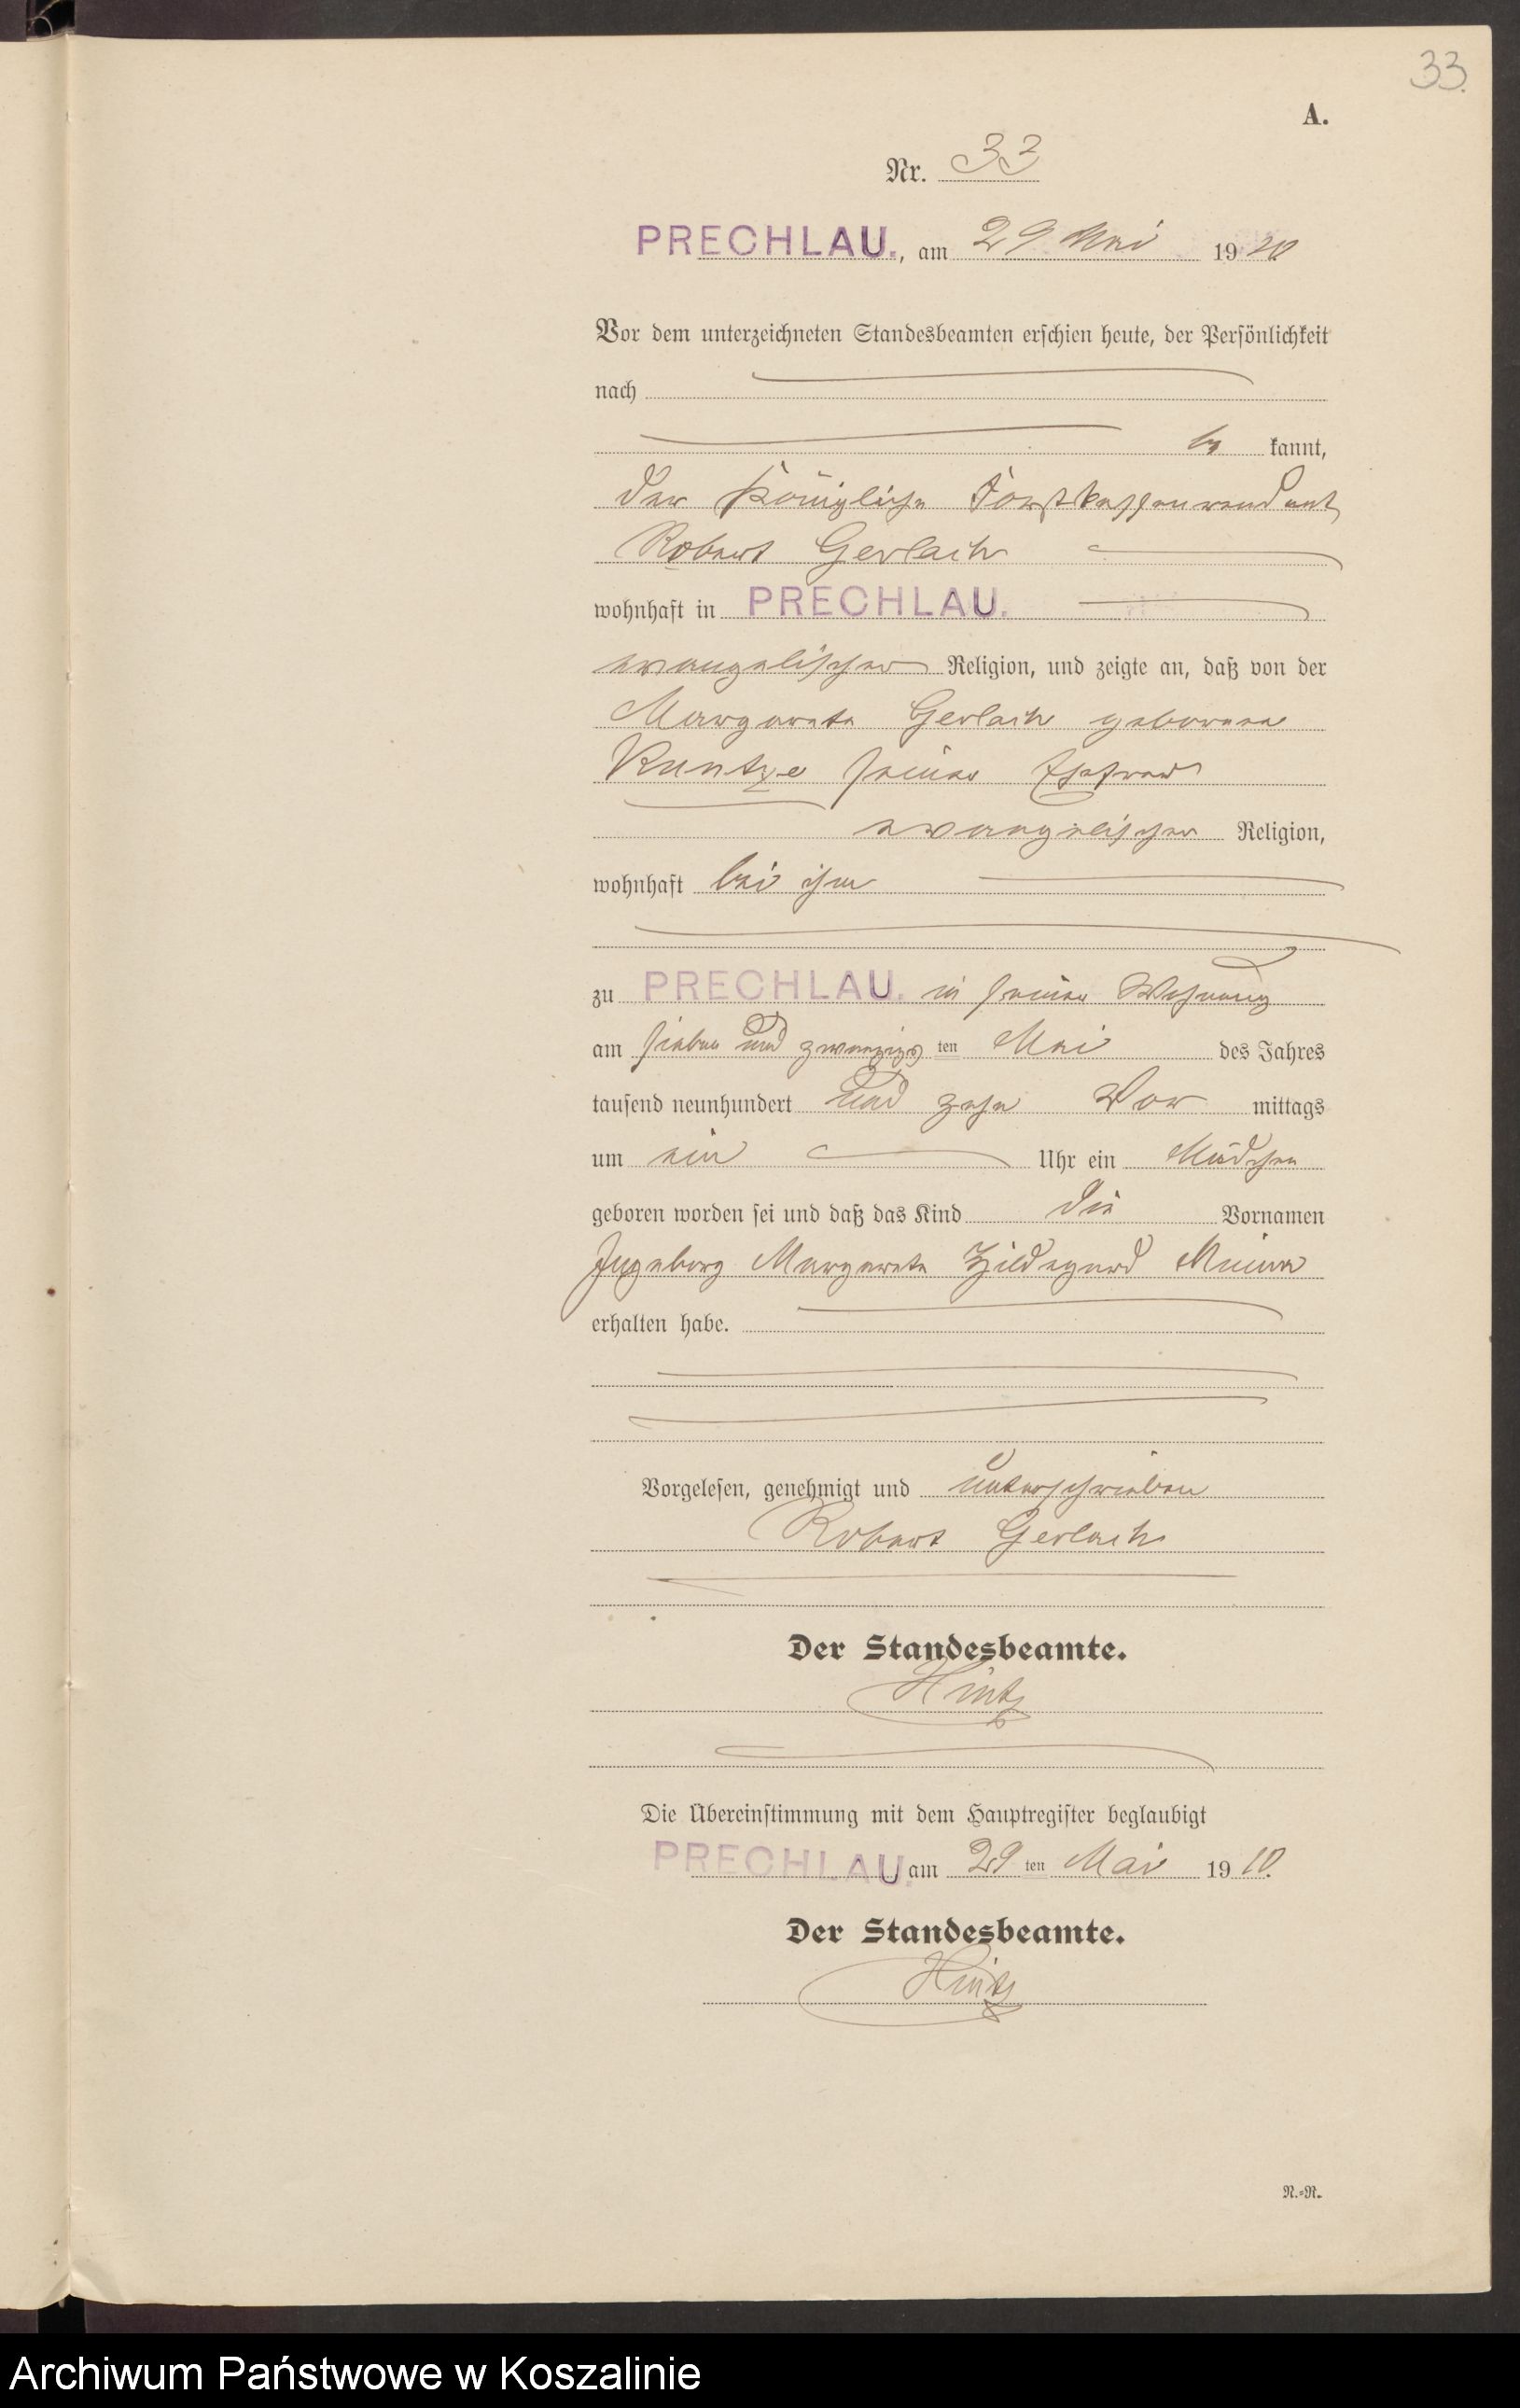 33.
A.
Nr. 33
PRECHLAU., am 29 Mai 1910
Vor dem unterzeichneten Standesbeamten erschien heute, der Persönlichkeit
nach
be kannt,
der Königliche Forstkassenrendant
Robert Gerlach
wohnhaft in PRECHLAU.
evangelischer Religion, und zeigte an, daß von der
Margarete Gerlach geborene
Kuntze seiner Ehefrau
evangelischer Religion,
wohnhaft bei ihm
zu PRECHLAU. in seiner Wohnung
am sieben und zwanzigsten Mai des Jahres
tausend neunhundert und zehn Vor mittags
um ein Uhr ein Mädchen
geboren worden sei und daß das Kind die Vornamen
Ingeborg Margarete Hildegard Minna
erhalten habe.
Vorgelesen, genehmigt und unterschrieben
Robert Gerlach
Der Standesbeamte.
Hintz
Die Übereinstimmung mit dem Hauptregister beglaubigt
PRECHLAU. am 29 ten Mai 1910.
Der Standesbeamte.
Hintz
N.=R.
Archiwum Państwowe w Koszalinie